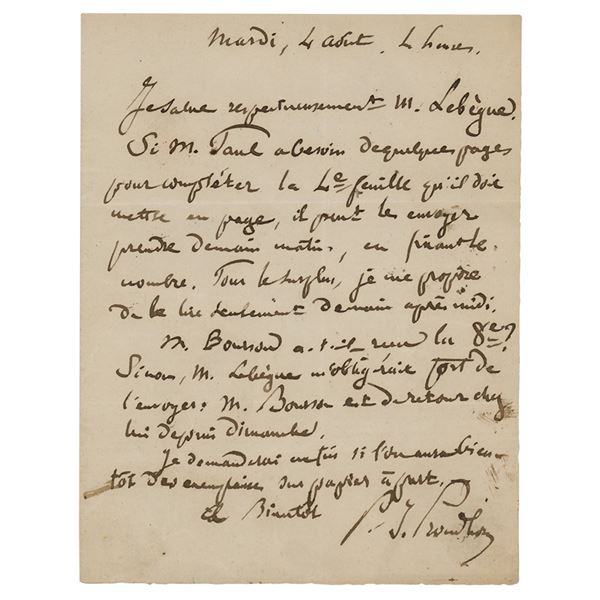 Mardi, 4 aout. 4 heures.
Je salue respectueusement M. Lebègue.
Si M. Paul a besoin de quelques pages
pour compléter la 4e feuille qu'il doit
mettre en page, il peut les envoyer
prendre demain matin, en fixant le
nombre. Pour le surplus, je me propose
de le lire seulement demain après midi.
M. Bourson a-t-il reçu la 8e?
Sinon, M. Lebègue m'obligerait fort de
l'envoyer: M. Bourson est de retour chez
lui depuis dimanche.
Je demanderai si l'on aura bien-
tôt des exemplaires sur papier à part.
Bientôt
P. J. Proudhon